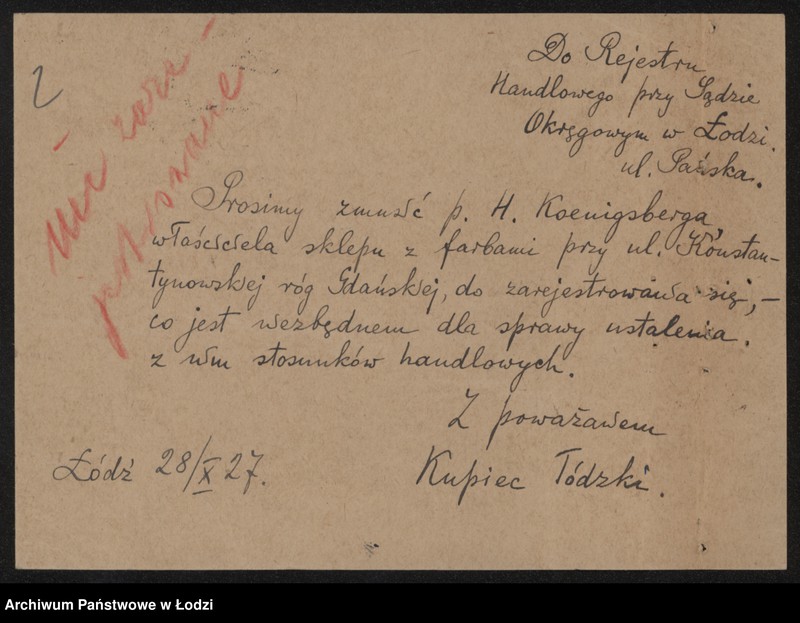 2
Nie zare-
Do Rejestru
Handlowego przy Sądzie
Okręgowym w Łodzi.
ul. Pańska.
Prosimy zmusić p. H. Koenigsberga,
właściciela sklepu z farbami przy ul. Konstan-
tynowskiej róg Gdańskiej, do zarejestrowania się, -
co jest niezbędnem dla sprawy ustalenia.
z nim stosunków handlowych.
Z poważaniem
Łódź 28/X 27.
Kupiec Łódzki.
Archiwum Państwowe w Łodzi